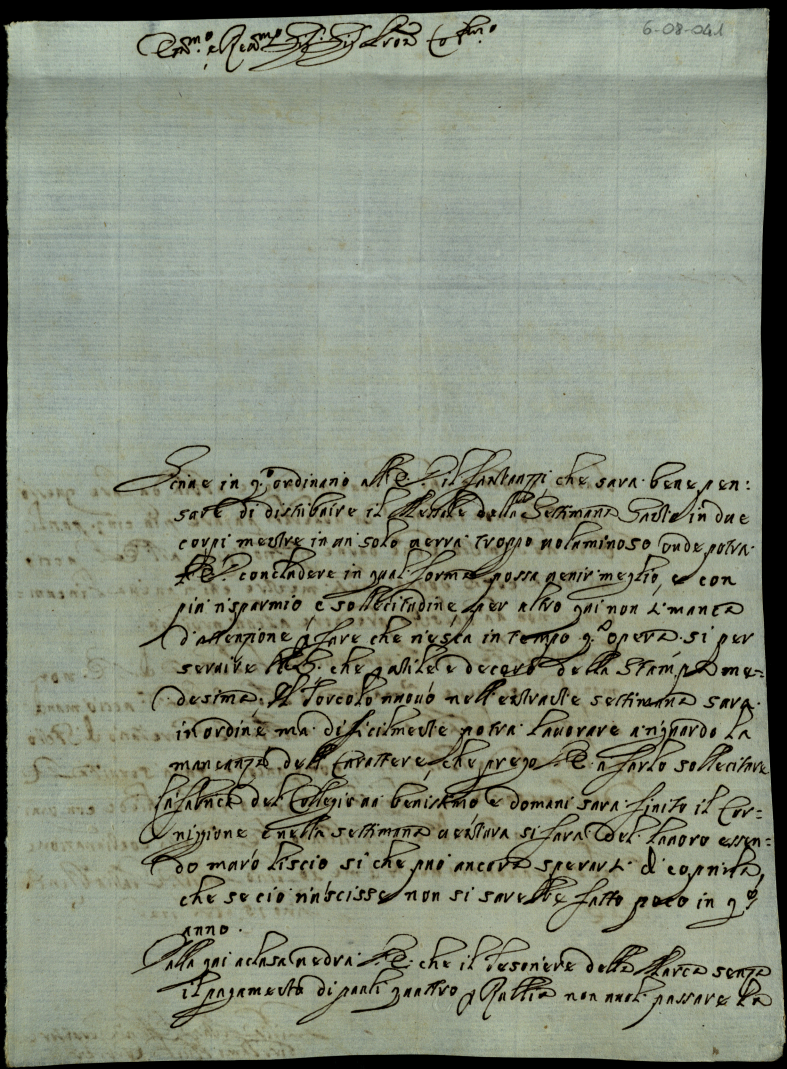 6-08-041
Em.mo e Rev.mo Sig. Sig. Pron Col.mo
Scrive in q.o ordinario all' E. V. il Fantauzzi che sarà bene pen:
sare di distribuire il Messale della Settimana Santa in due
corpi mentre in un solo verrà troppo voluminoso onde potrà
l' E. V. concludere in qual forma possa venir meglio, e con
più risparmio e sollecitudine, per altro qui non si manca
d'attenzione p. fare che riesca in tempo q.a opera si per
servire l' E. V. che p. utile e decoro della Stampa me=
desima. Il Torcolo nuovo nell' entrante settimana sarà
in ordine ma dificilmente potrà lavorare a riguardo la
mancanza dell Carattere, che prego l' E. V. a farlo sollecitare
la fabrica del Collegio va benissimo e domani sarà finito il Cor=
nigione e nella settimana ventura si farà del lavoro essen=
do muro liscio si che può ancora sperarsi di coprirla,
che se ciò riuscisse non si sarebbe fatto poco in q.o
anno.
Dalla qui aclusa vedrà l' E. V. che il Tesoriere della Marca senza
il pagamento di pauli quattro p. Rubbia non vuol passare la